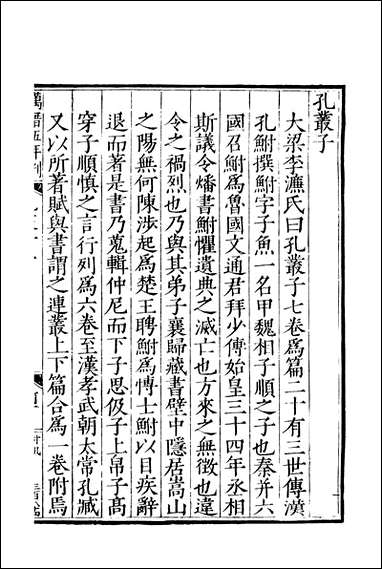 孔叢子
大梁李濂氏曰孔叢子七卷爲篇二十有三世傳漢
孔鮒撰鮒字子魚一名甲魏相子順之子也秦并六
國召鮒爲魯國文通君拜少傅始皇三十四年丞相
斯議令燔書鮒懼遺典之滅亡也方來之無徵也違
令之禍烈也乃與其弟子襄歸藏書壁中隱居嵩山
之陽無何陳涉起爲楚王聘鮒爲博士鮒以目疾辭
退而著是書乃蒐輯仲尼而下子思伋子上帛子髙
穿子順慎之言行列爲六卷至漢孝武朝太常孔臧
又以所著賦與書謂之連叢上下篇合爲一卷附焉